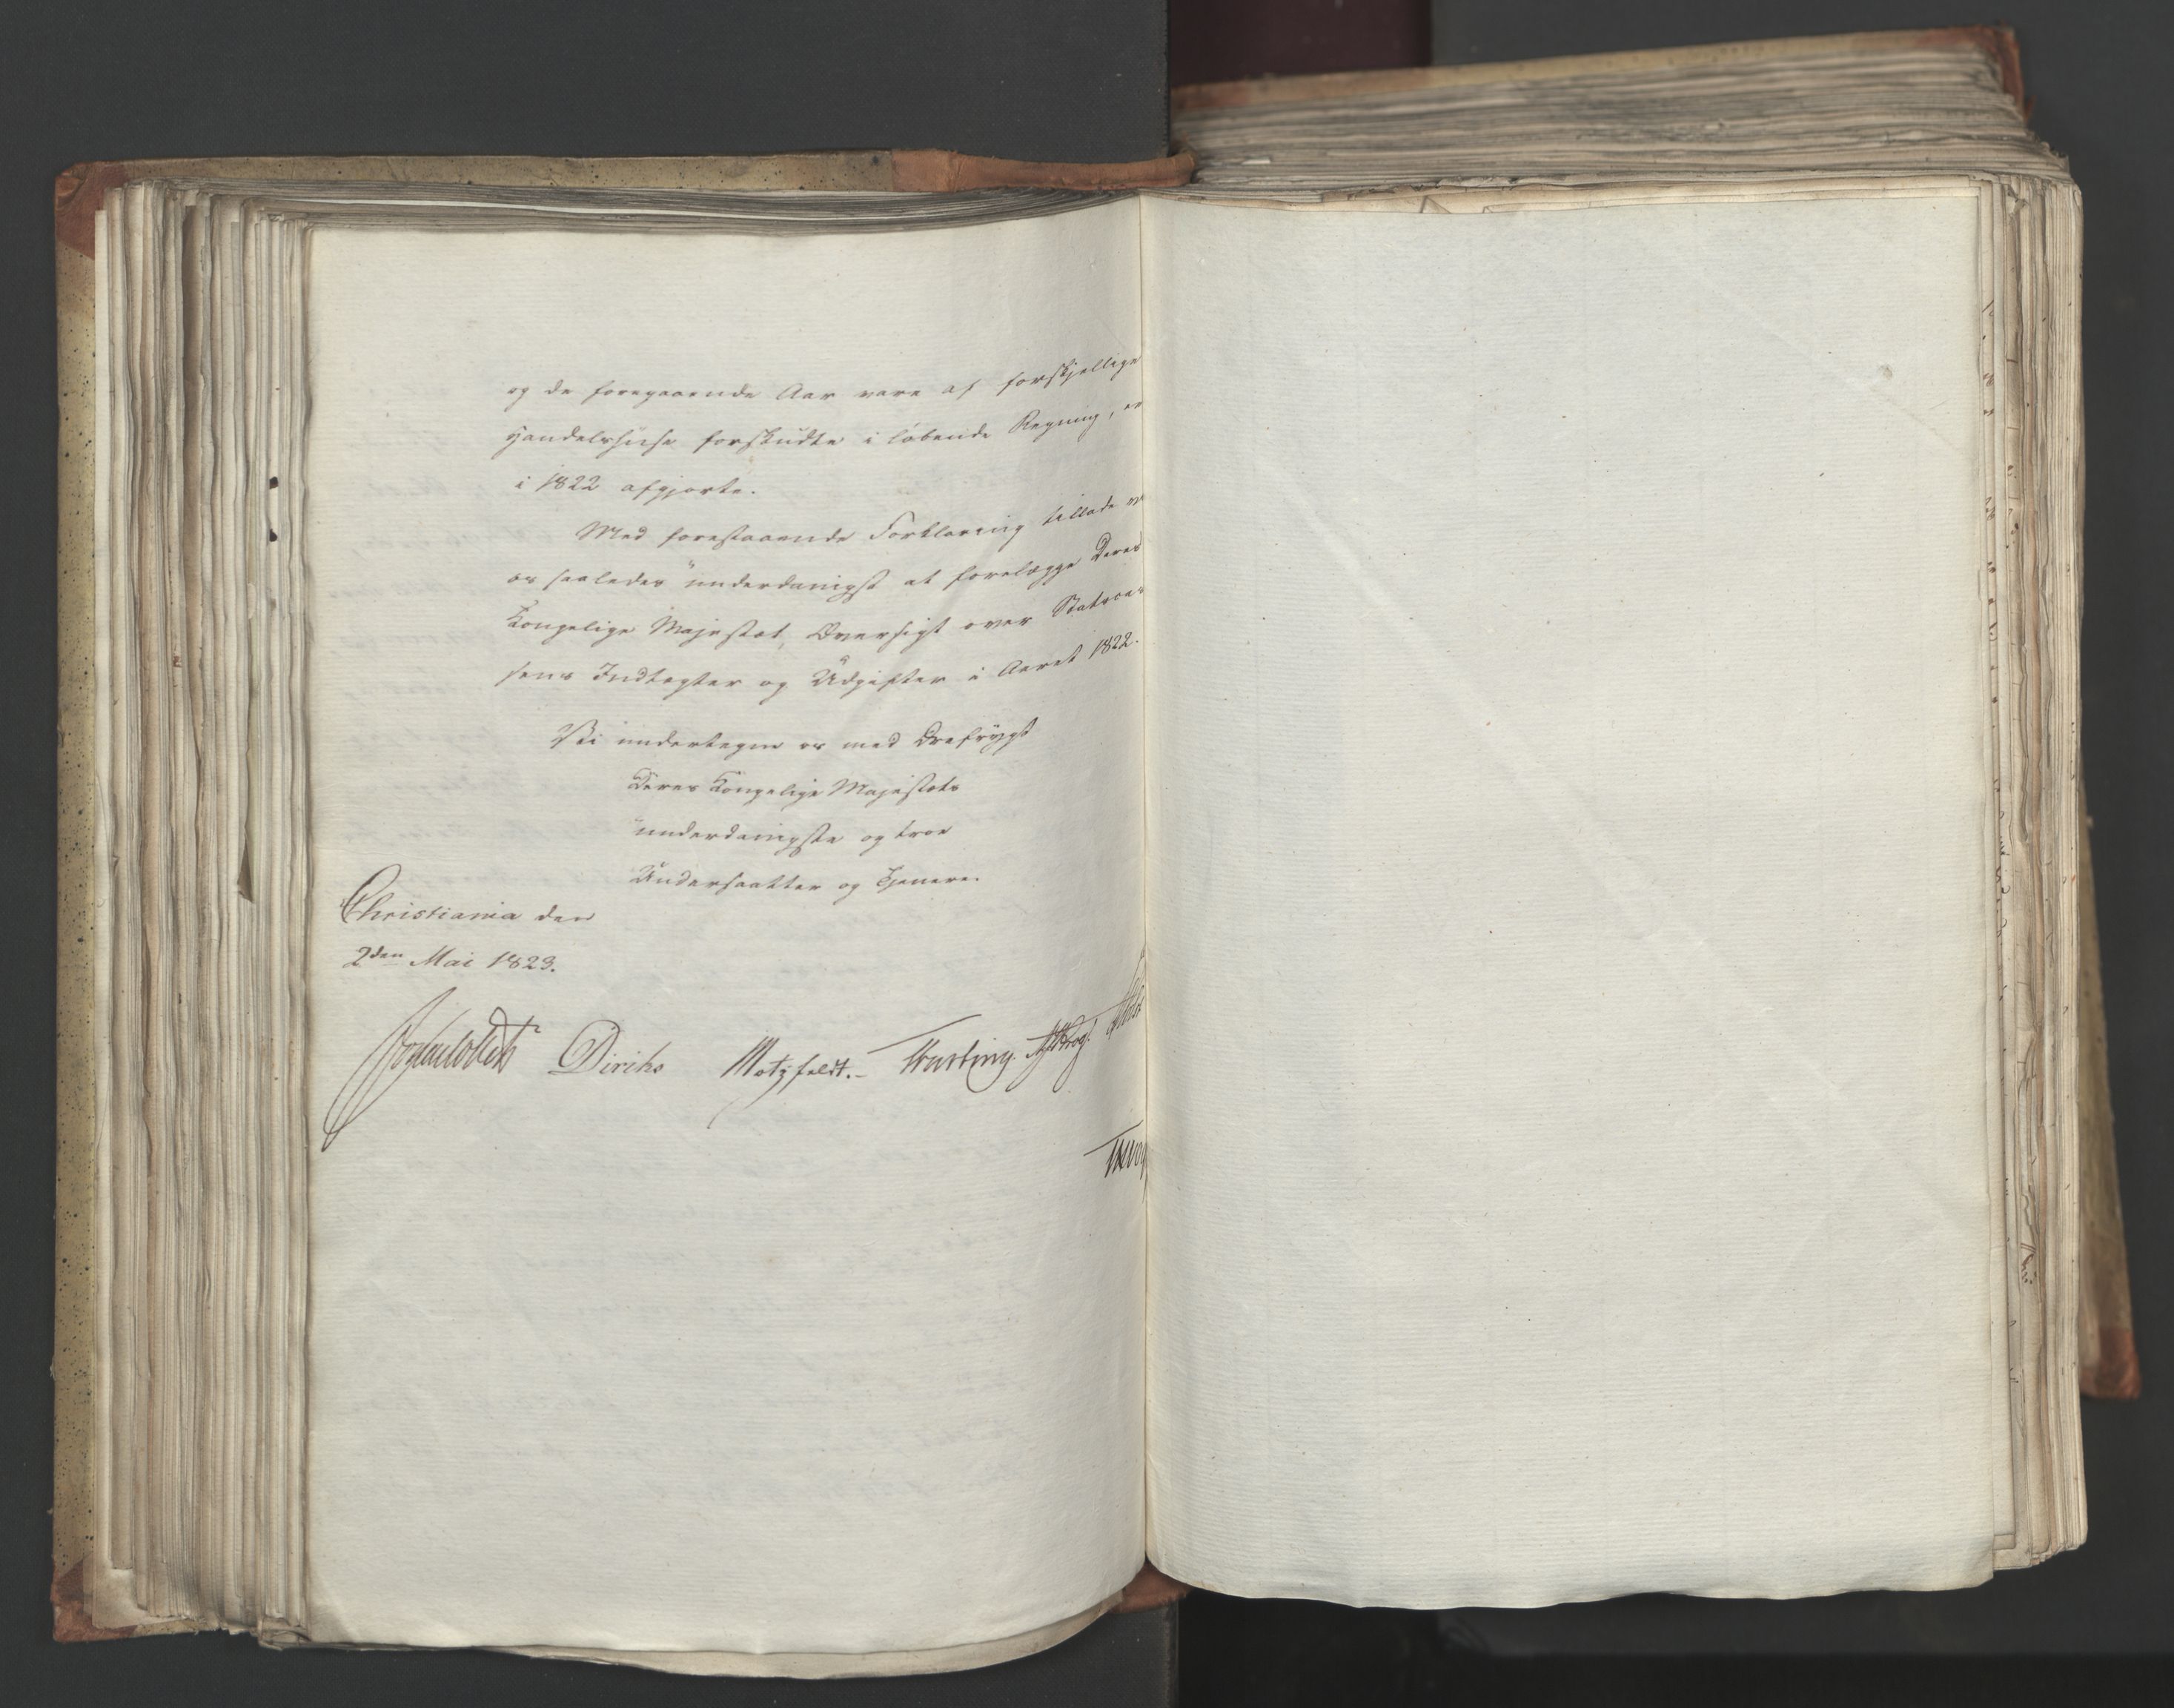 og de foregaaende Aar vare af forskjellige
Handelshuse forskudte i løbende Regning, er
i 1822 afgjorte.
Med forestaaende Forklaring tillade vi
os saaledes underdanigst at forelægge Deres
Kongelige Majestæt, Oversigt over Statscas-
sens Indtægter og Udgifter i Aaret 1822.
Vi undertegne os med Ærefrygt
Deres Kongelige Majestæts
underdanigste og troe
Undersaatter og Tjenere.
Christiania den
2den Mai 1823.
Diriks Motzfeldt.